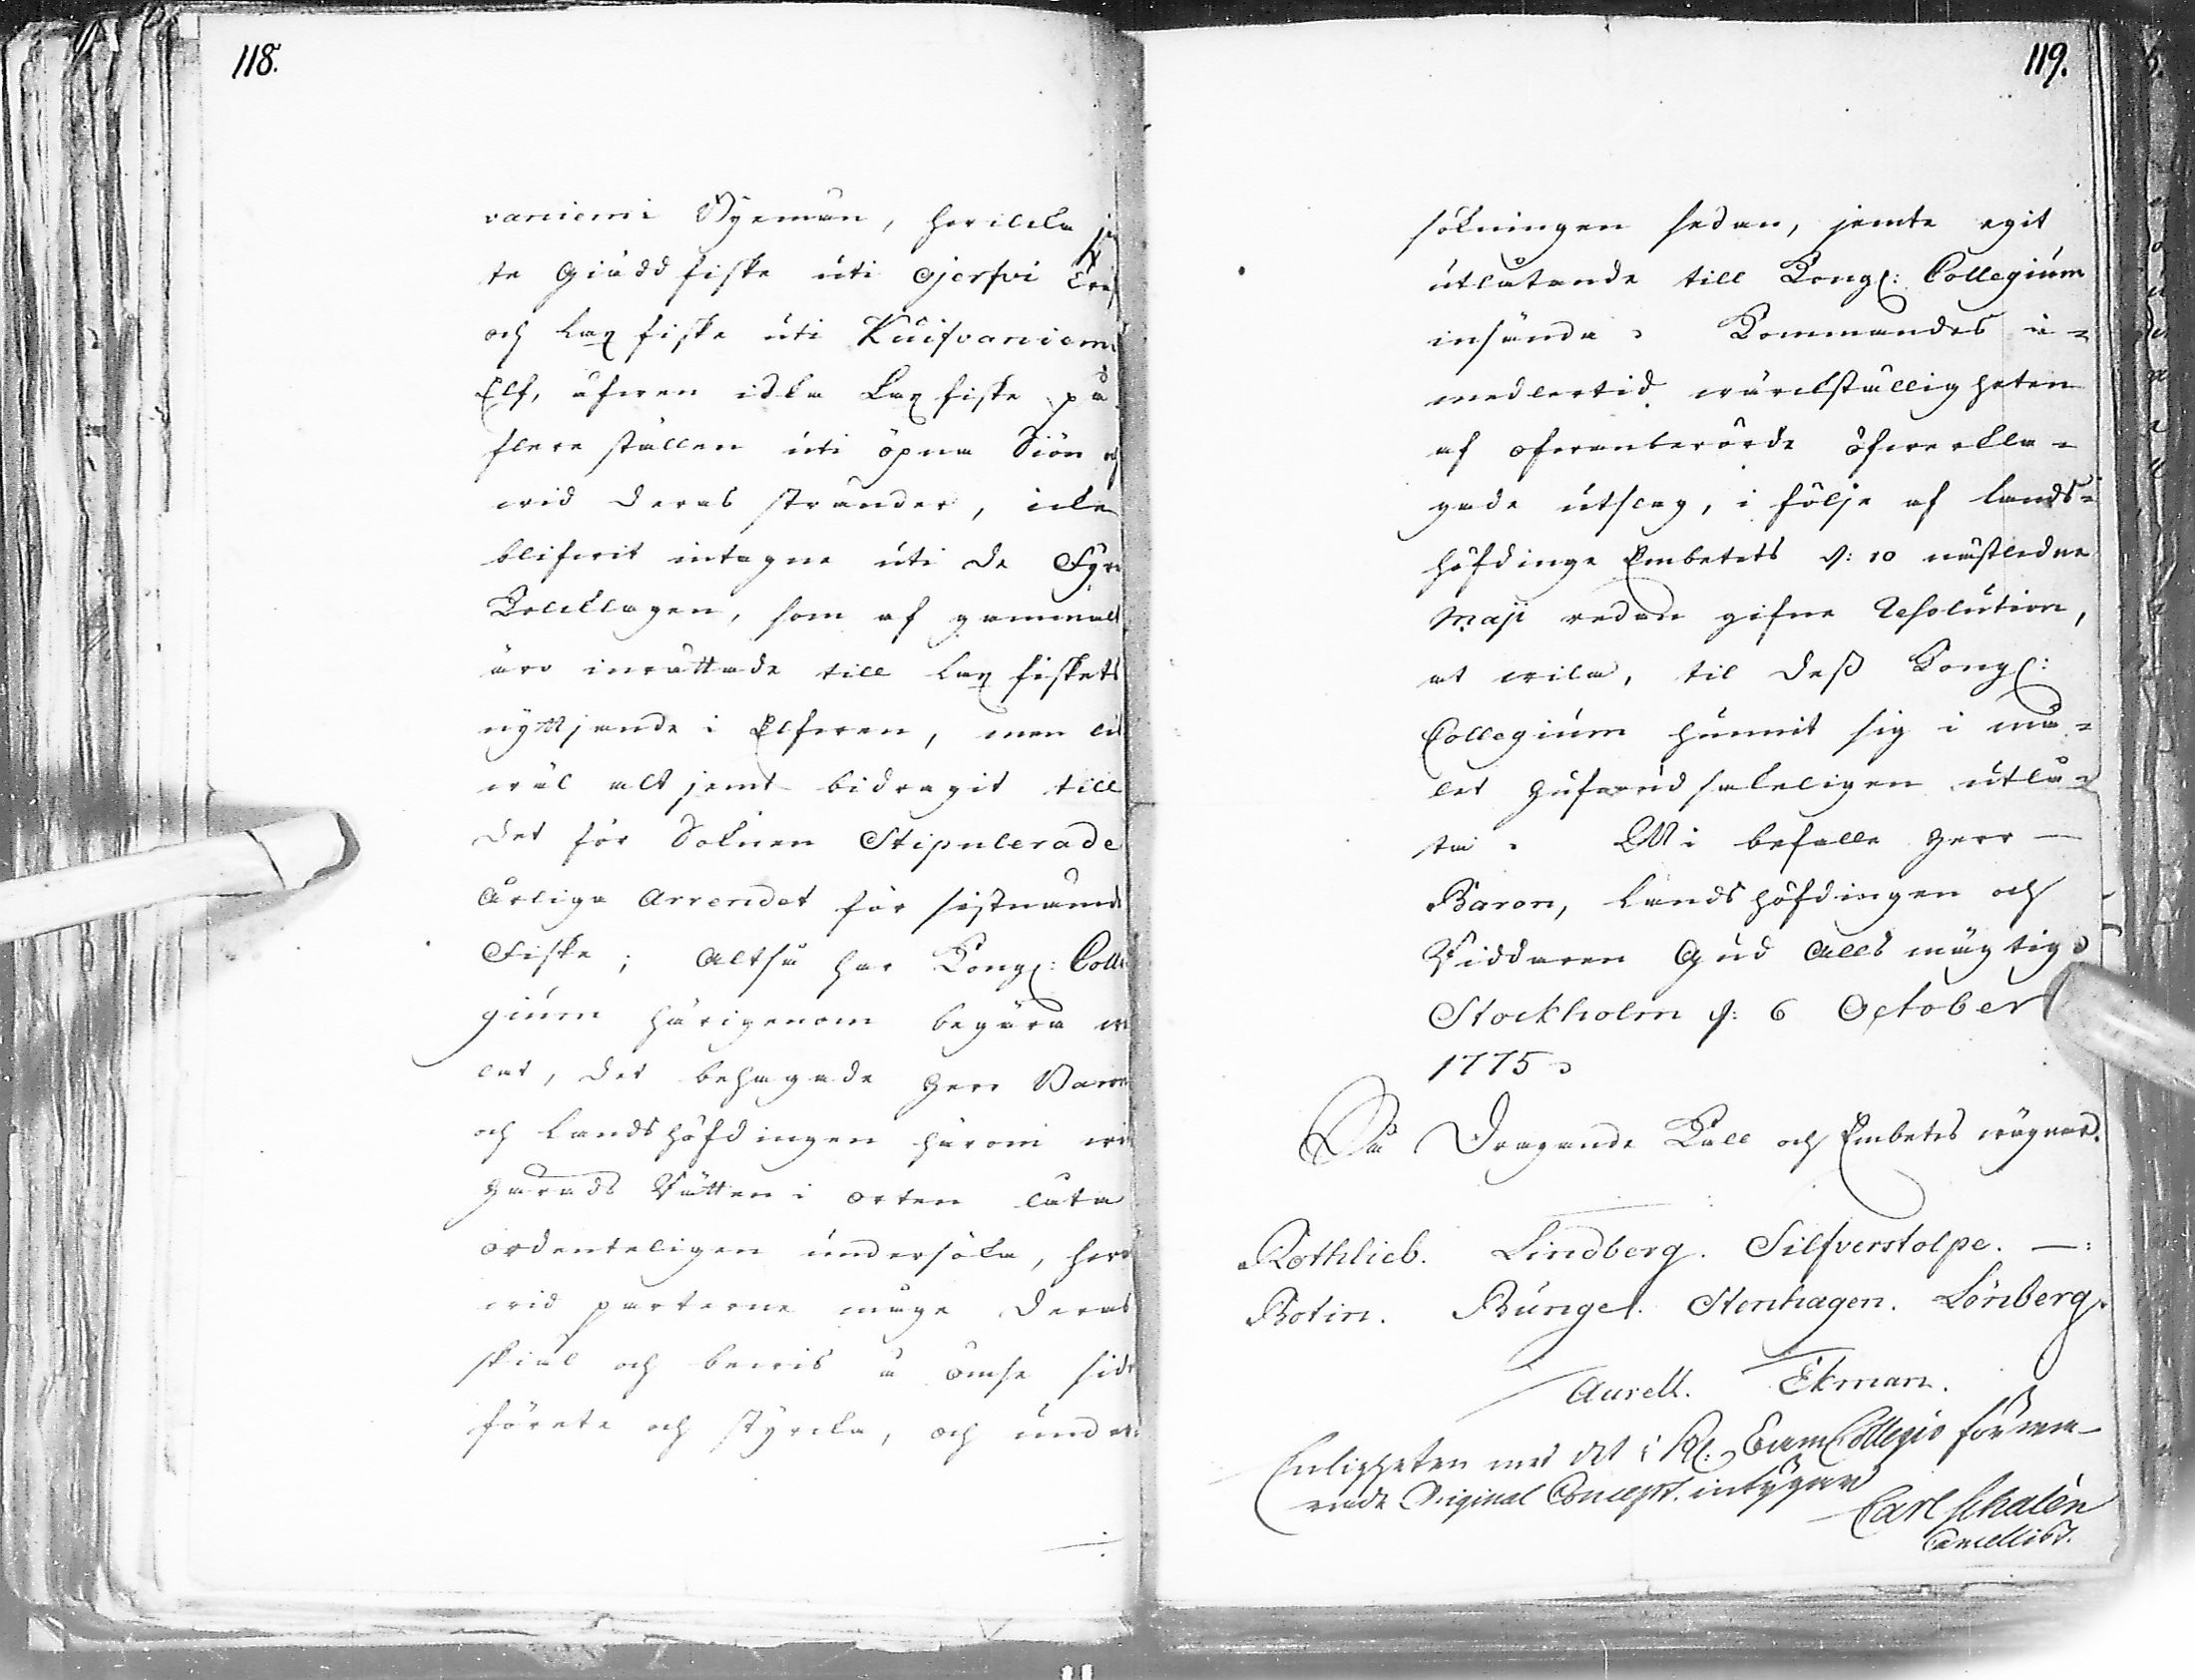 118.
vaniemi Byemän, hvilcka
te Giädd fiske uti Ojerfvi
och Lax fiske uti Kuifvaniemi
Elf, äfwen idka Lax fiske på
flere ställen uti öpna Siön och
wid deras stränder, icke
blifwit intagne uti de Fyra
Kolcklagen, som af gammalt
äro inrättade till Lax fiskets
nyttjande i Elfwen, men lik
wäl alt jemt bidragit till
det för Soknen Stipulerade
årliga Arrendet för sistnämde
Fiske; Altså har Kongl: Colle
gium härigenom begära
lat, det behagade Herr Baron
och Landshöfdingen härom wid
Härads Rätten i orten låta
ordenteligen undersöka, hwar
wid parterne måge deras
skiäl och bewis å ömse sidor
förete och styrcka, och under
119.
sökningen sedan, jemte egit
utlåtande till Kongl: Collegium
insända. Kommandes i-
medlertid wärckställigheten
af ofwanberörde öfwerkla-
gade utslag, i följe af Lands-
höfdinge Embetets d: 10 nästledne
Maji redan gifne Resolution,
at wila, til dess Kongl:
Collegium hunnit sig i må-
let hufwudsakeligen utlå-
ta. Wi befalle Herr
Baron, Landshöfdingen och
Riddaren Gud Alls mägtig.
Stockholm d: 6 October
1775.
På Dragande Kall och Embets wägnar.
Rothlieb. Lindberg. Silfverstolpe.
Botin. Bunge. Stenhagen. Lönberg.
Aurell. Ekman.
Enligheten med det i Kl: Cam Collegio förwa-
rade Original Concept. intygar
Carl Schalén
Cancellist.